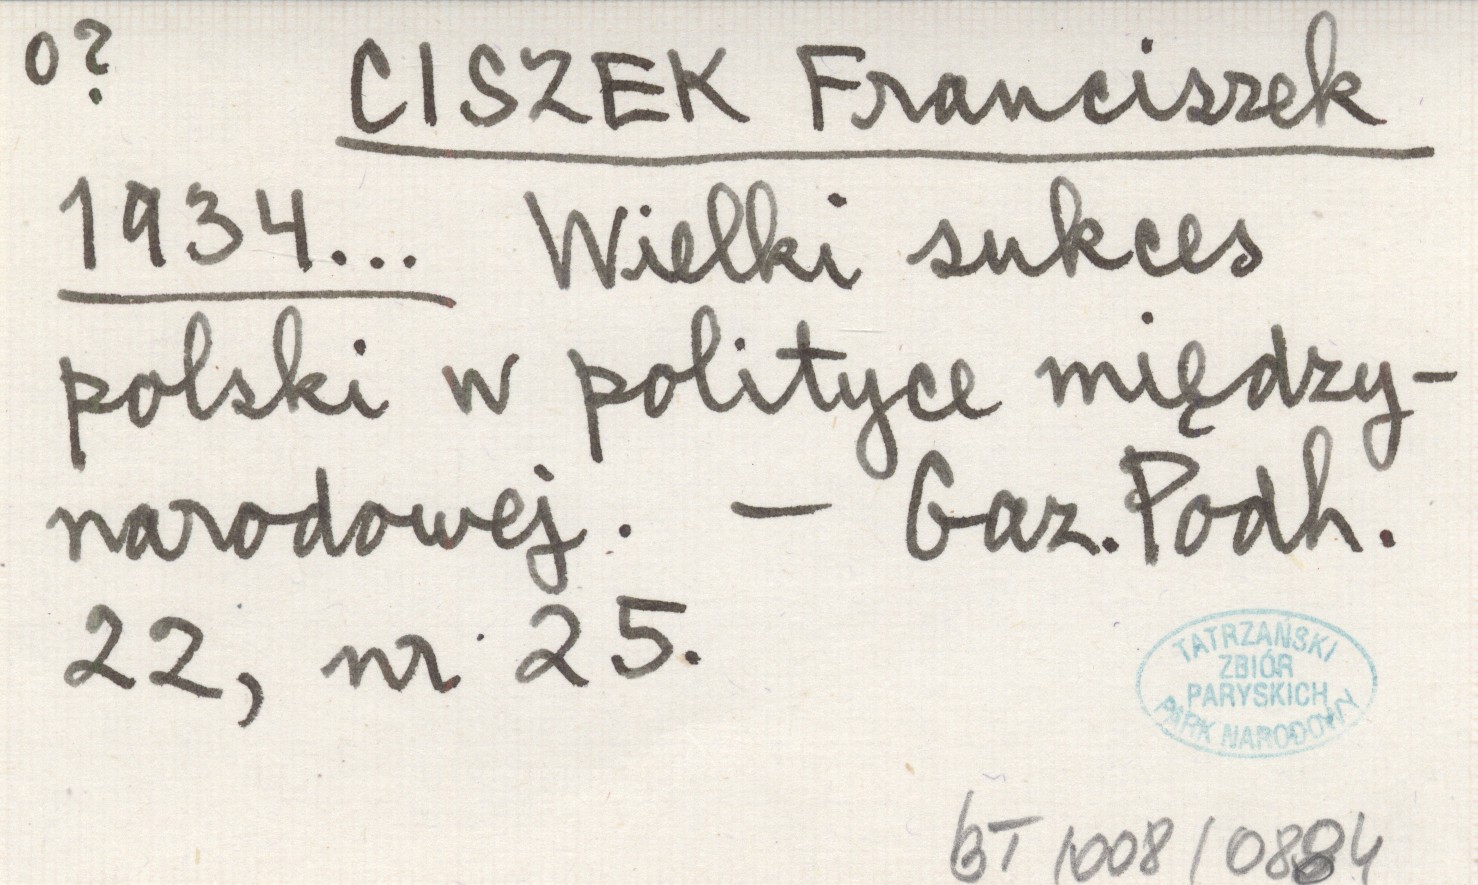 o? CISZEK Franciszek
1934... Wielki sukces
polski w polityce między-
narodowej. — Gaz. Podh.
22, nr 25.
TATRZAŃSKI
ZBIÓR
PARYSKICH
PARK NARODOWY
BT 1008 / 0884